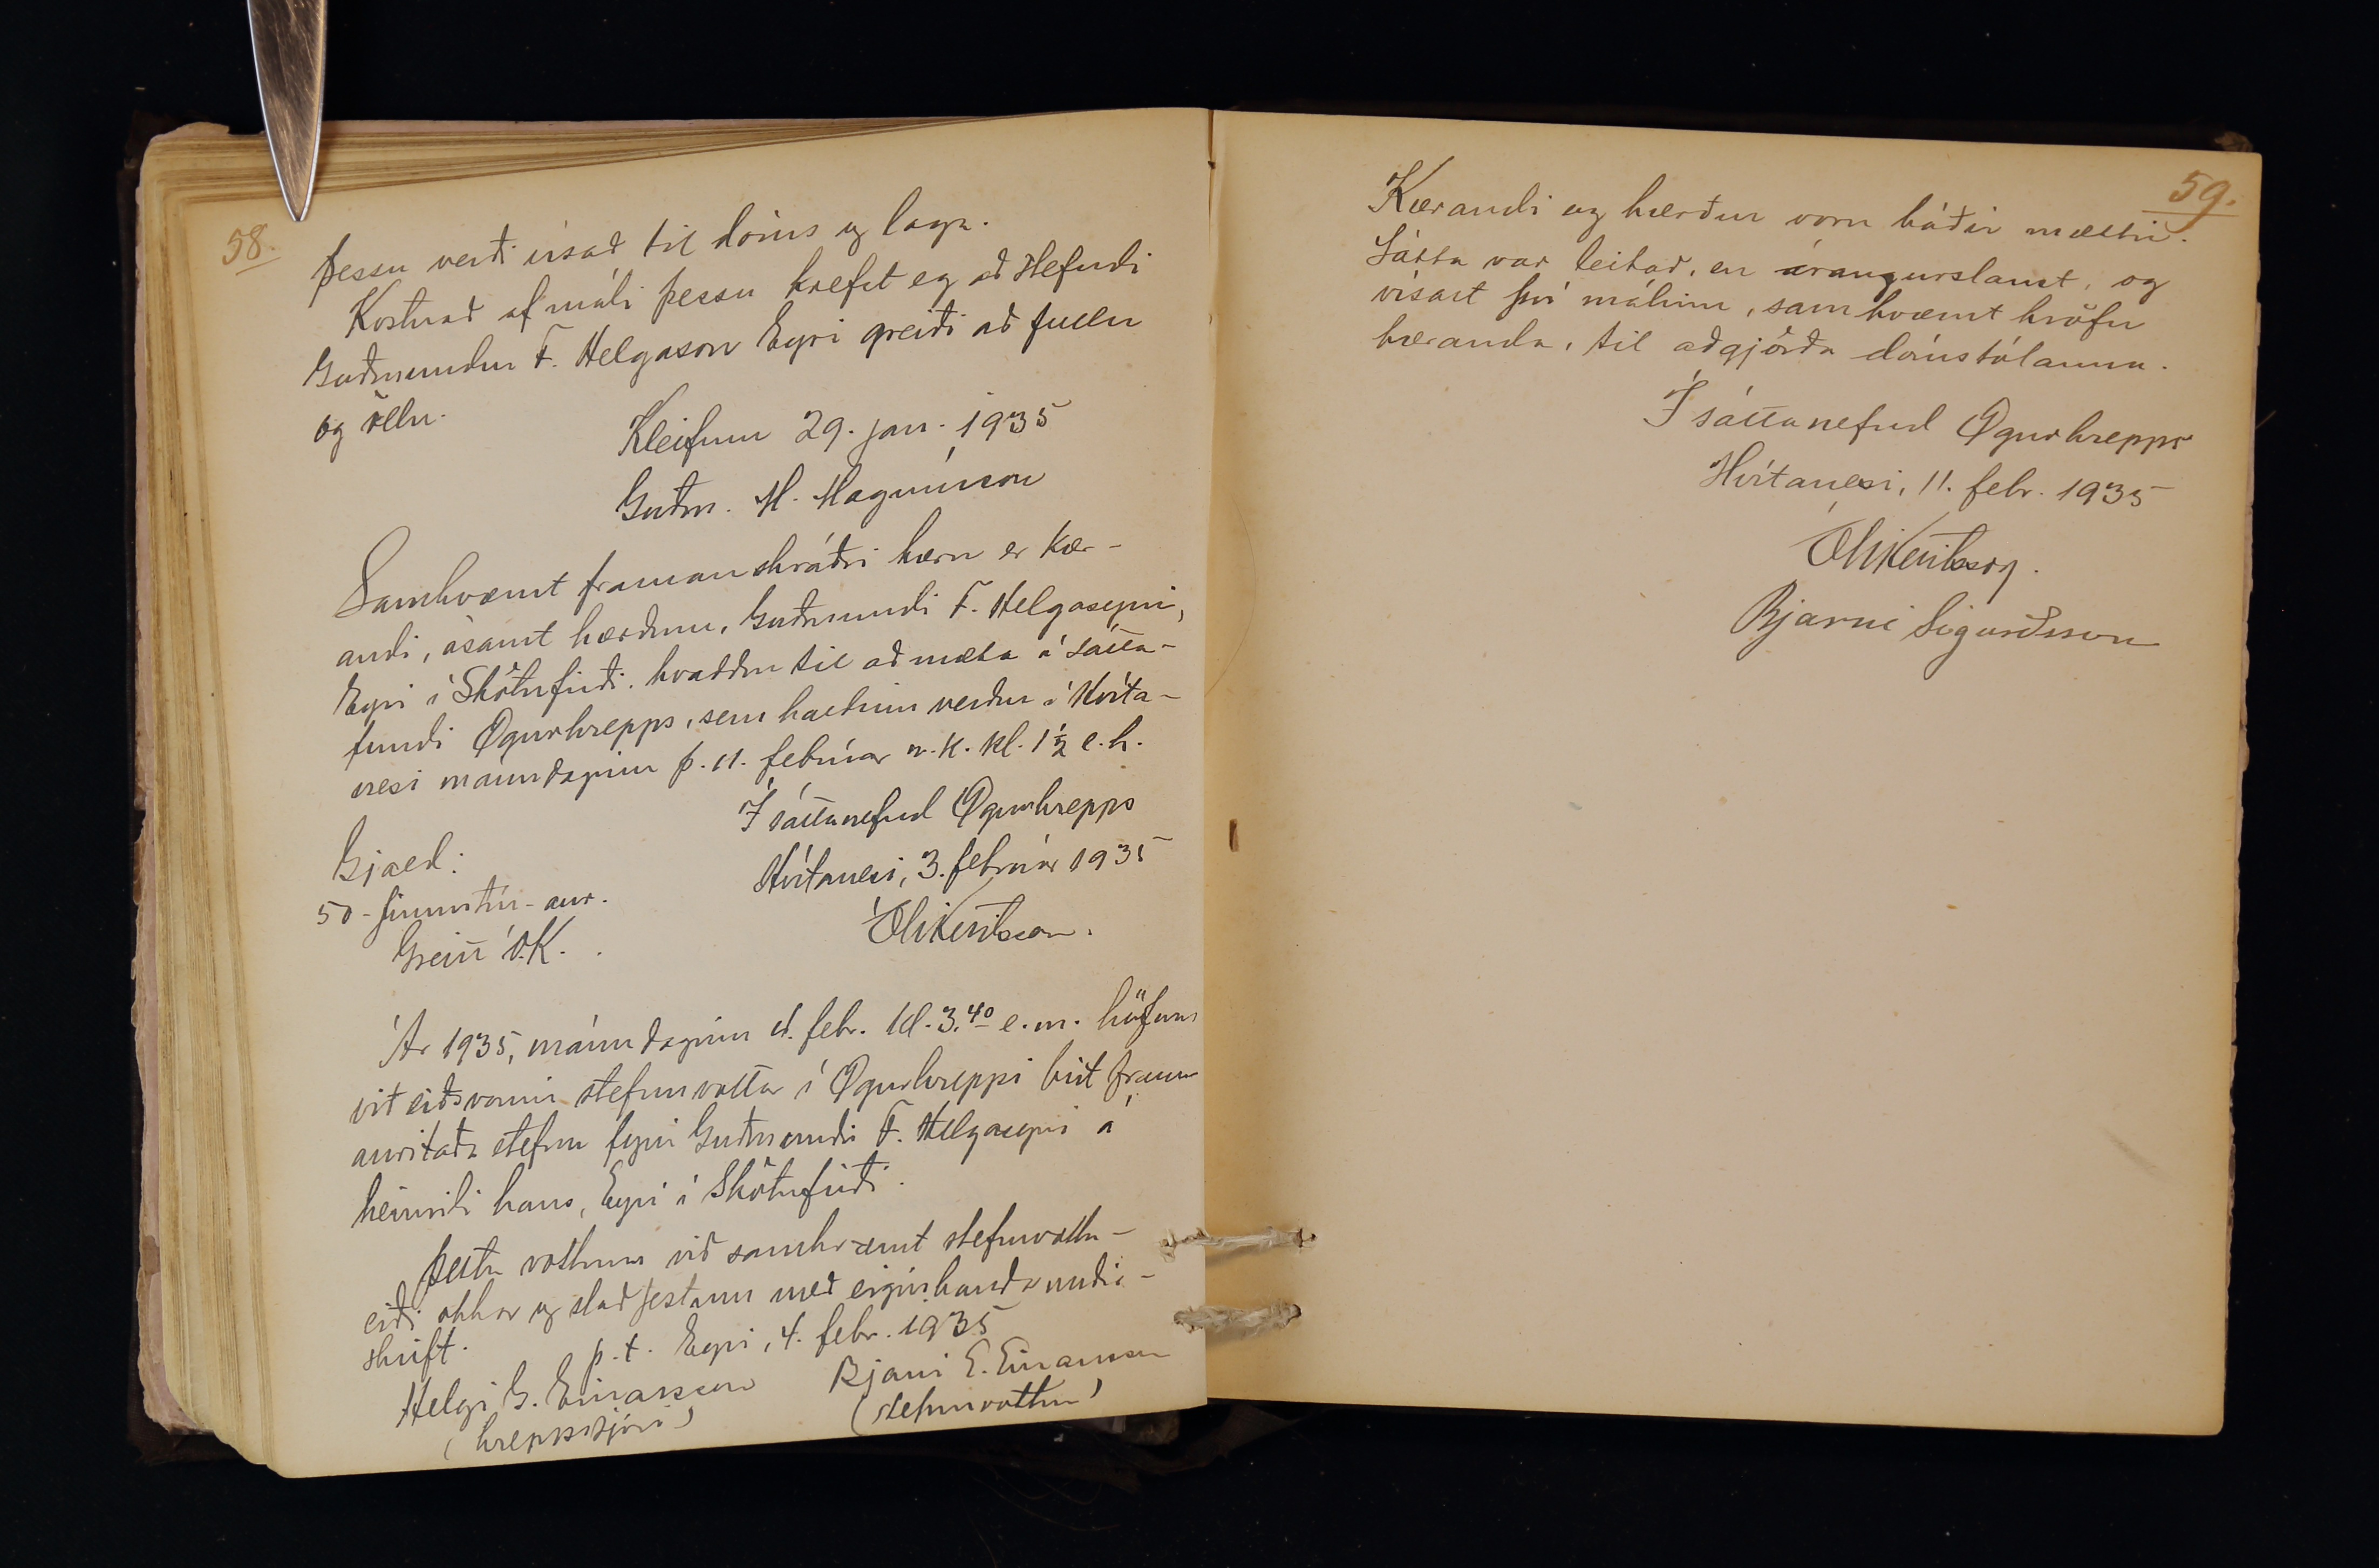 58.
þessu verði vísað til dóms og laga.
Kostnað af máli þessu krefst eg að Hefndi
Guðmundur F. Helgason Eyri greiði að fullu
og öllu.
Kleifum 29. jan. 1935
Guðm. M. Magnússon
Samkvæmt framanskráðri kæru er Kær-
andi, ásamt kærðum, Guðmundi F. Helgasyni,
Eyri í Skötufirði, kvaddur til að mæta á sátta-
fundi Ögurhrepps, sem haldinn verður í Hvíta-
nesi mánudaginn þ. 11. febrúar n.k. kl. 1½ e.h.
Í sáttanefnd Ögurhrepps
Hvítanesi, 3. febrúar 1935
Gjald:
50 - fimmtíu - aur.
Greitt Ó.K.
Óli Ketilsson.
Ár 1935, mánudaginn 4. febr. kl. 3.40 e.m. höfum
við eiðsvarnir stefnuvottar í Ögurhreppi birt fram
anritaða stefnu fyrir Guðmundi F. Helgasyni á
heimili hans, Eyri í Skötufirði.
Þetta vottum við samkvæmt stefnuvottu-
eiði okkar og staðfestum með eiginhandar undir-
skrift.
p.t. Eyri, 4. febr. 1935
Helgi G. Einarsson Bjarni E. Einarsson
(hreppstjóri) (stefnuvottur)
59.
Kærandi og kærður voru báðir mættir.
Sátta var leitað, en árangurslaust, og
vísast því málinu, samkvæmt kröfu
kæranda, til aðgjörða dómstólanna.
Í sáttanefnd Ögurhrepps
Hvítanesi, 11. febr. 1935
Óli Ketilsson.
Bjarni Sigurðsson